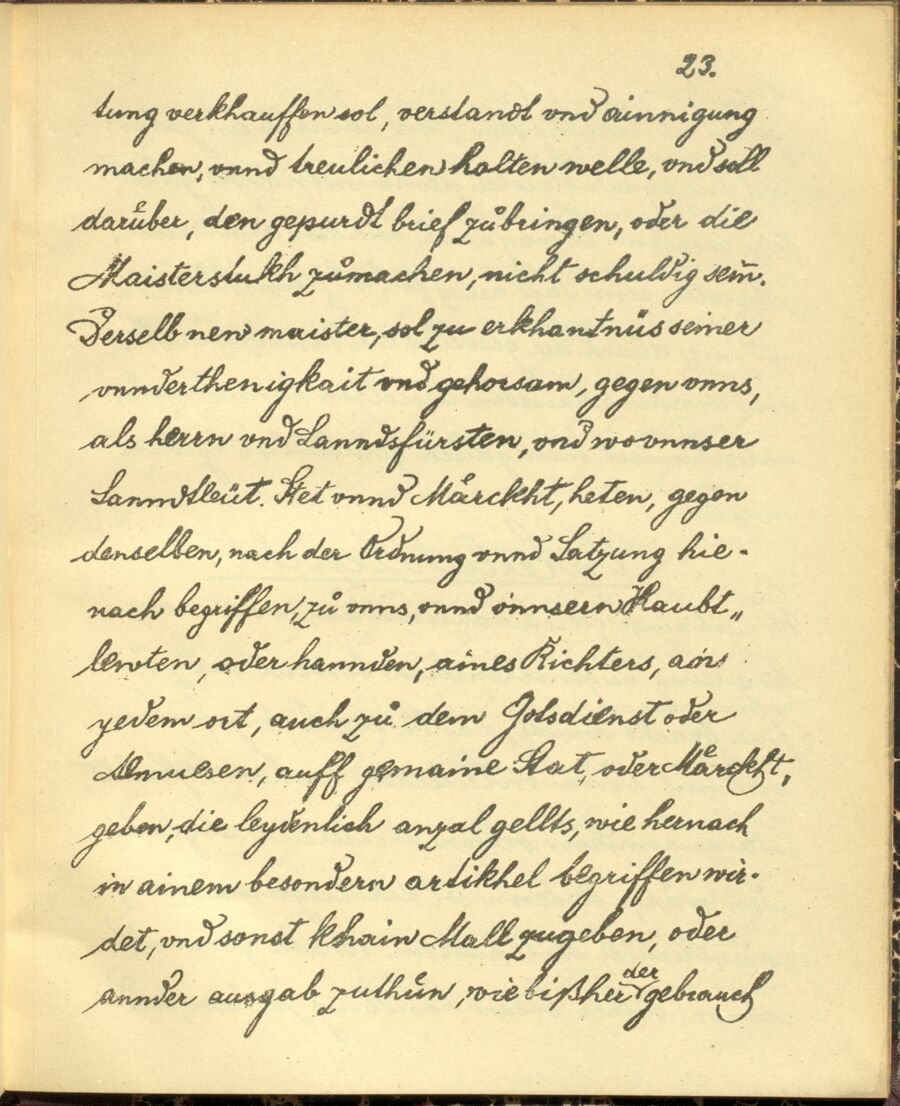 23.
tung verkhauffen sol, verstandt vnd ainnigung
machen, vnnd treulichen halten welle, vnd soll
darüber, den gepurdt brief zůbringen, oder die
Maisterstukh zůmachen, nicht schuldig sein.
Derselb new maister, sol zu erkhantnüs seiner
vnnderthenigkait vnd gehorsam, gegen vnns,
als herrn vnd Lanndsfürsten, vnd wo vnnser
Lanndtleüt. Stet vnnd Märckht, heten, gegen
denselben, nach der Ordnung vnnd Satzung hie-
nach begriffen, zů vnns, vnnd vnnsern Haubt„
lewten, oder hannden, aines Richters, an
yedem ort, auch zů dem Gotsdienst oder
Almuesen, auff gemaine Stat, oder Märckht,
geben, die leydenlich anzal gellts, wie hernach
in ainem besondern artikhel begriffen wir-
det, vnd sonst khain Mall zugeben, oder
annder ausgab zuthůn, wie bißher der gebrauch